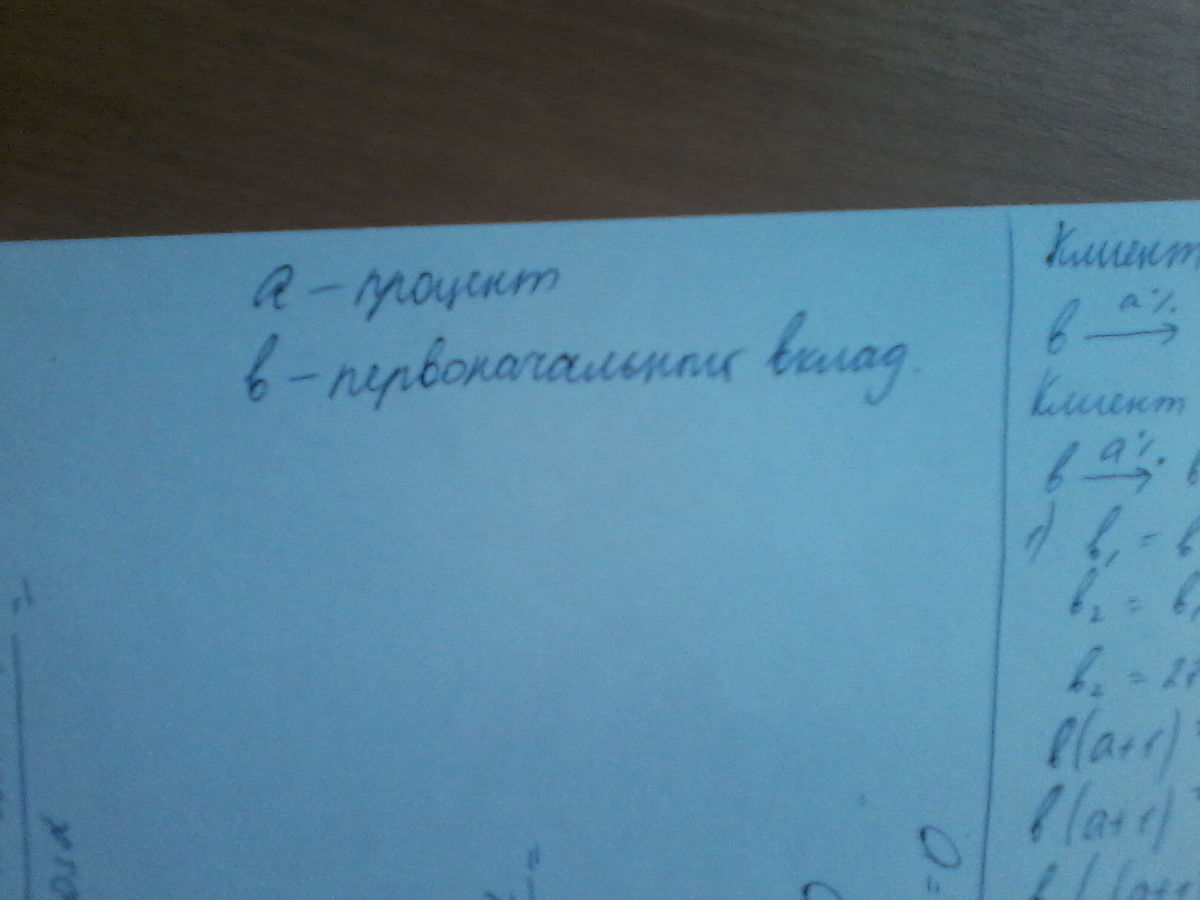 а – процент
в – первоначальный вклад.
Клиент
в a%→
Клиент
в a%→ в
1) в₁ = в
в₂ = в₁
в₂ = 2
в(а+1)
в(а+1)
=0